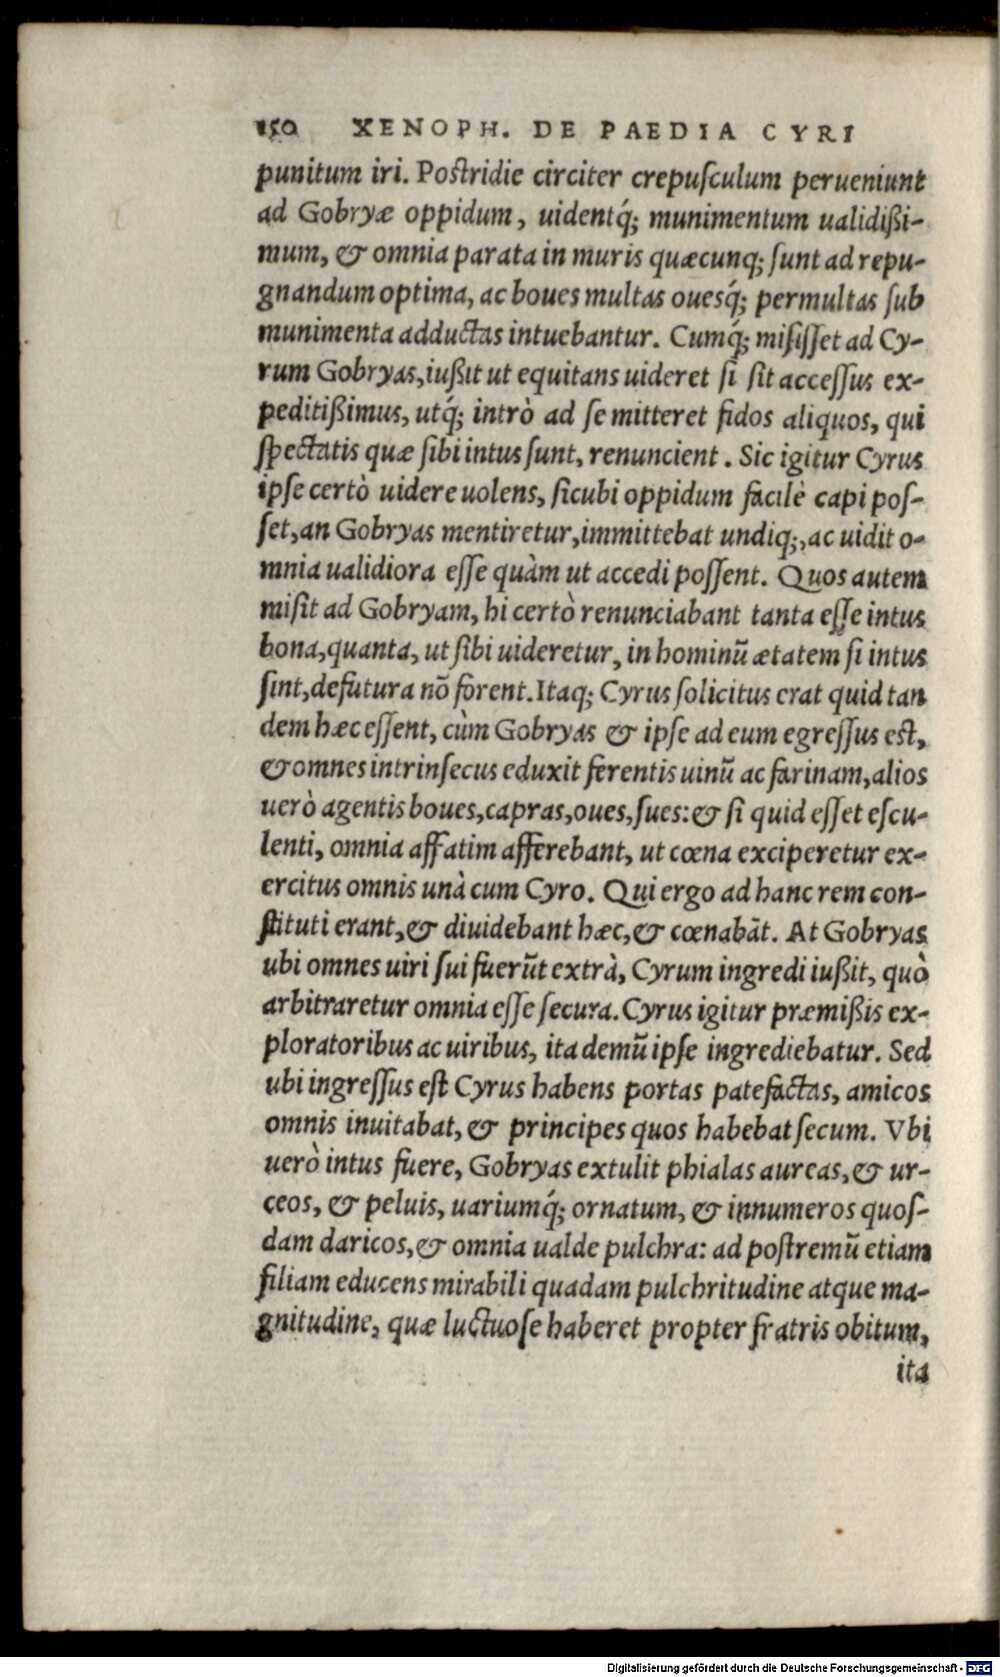 150 XENOPH. DE PAEDIA CYRI
punitum iri. Postridie circiter crepuſculum perueniunt
ad Gobryæ oppidum, uidentq́; munimentum ualidißi-
mum, & omnia parata in muris quæcunq; ſunt ad repu-
gnandum optima, ac boues multas ouesq́; permultas ſub
munimenta adductas intuebantur. Cumq́; miſiſſet ad Cy-
rum Gobryas, iußit ut equitans uideret ſi ſit acceſſus ex-
peditißimus, utq́; intrò ad ſe mitteret fidos aliquos, qui
ſpectatis quæ ſibi intus ſunt, renuncient. Sic igitur Cyrus
ipſe certò uidere uolens, ſicubi oppidum facilè capi poſ-
ſet, an Gobryas mentiretur, immittebat undiq;, ac uidit o-
mnia ualidiora eſſe quàm ut accedi poſſent. Quos autem
miſit ad Gobryam, hi certò renunciabant tanta eſſe intus
bona, quanta, ut ſibi uideretur, in hominū ætatem ſi intus
ſint, defutura nō forent. Itaq; Cyrus ſolicitus erat quid tan
dem hæc eſſent, cùm Gobryas & ipſe ad eum egreſſus eſt,
& omnes intrinſecus eduxit ferentis uinū ac farinam, alios
uerò agentis boues, capras, oues, ſues: & ſi quid eſſet eſcu-
lenti, omnia affatim afferebant, ut cœna exciperetur ex-
ercitus omnis unà cum Cyro. Qui ergo ad hanc rem con-
ſtituti erant, & diuidebant hæc, & cœnabāt. At Gobryas
ubi omnes uiri ſui fuerūt extrà, Cyrum ingredi iußit, quò
arbitraretur omnia eſſe ſecura. Cyrus igitur præmißis ex-
ploratoribus ac uiribus, ita demū ipſe ingrediebatur. Sed
ubi ingreſſus eſt Cyrus habens portas patefactas, amicos
omnis inuitabat, & principes quos habebat ſecum. Vbi
uerò intus fuere, Gobryas extulit phialas aureas, & ur-
ceos, & peluis, uariumq́; ornatum, & innumeros quoſ-
dam daricos, & omnia ualde pulchra: ad poſtremū etiam
filiam educens mirabili quadam pulchritudine atque ma-
gnitudine, quæ luctuoſe haberet propter fratris obitum,
ita
Digitalisierung gefördert durch die Deutsche Forschungsgemeinschaft - DFG